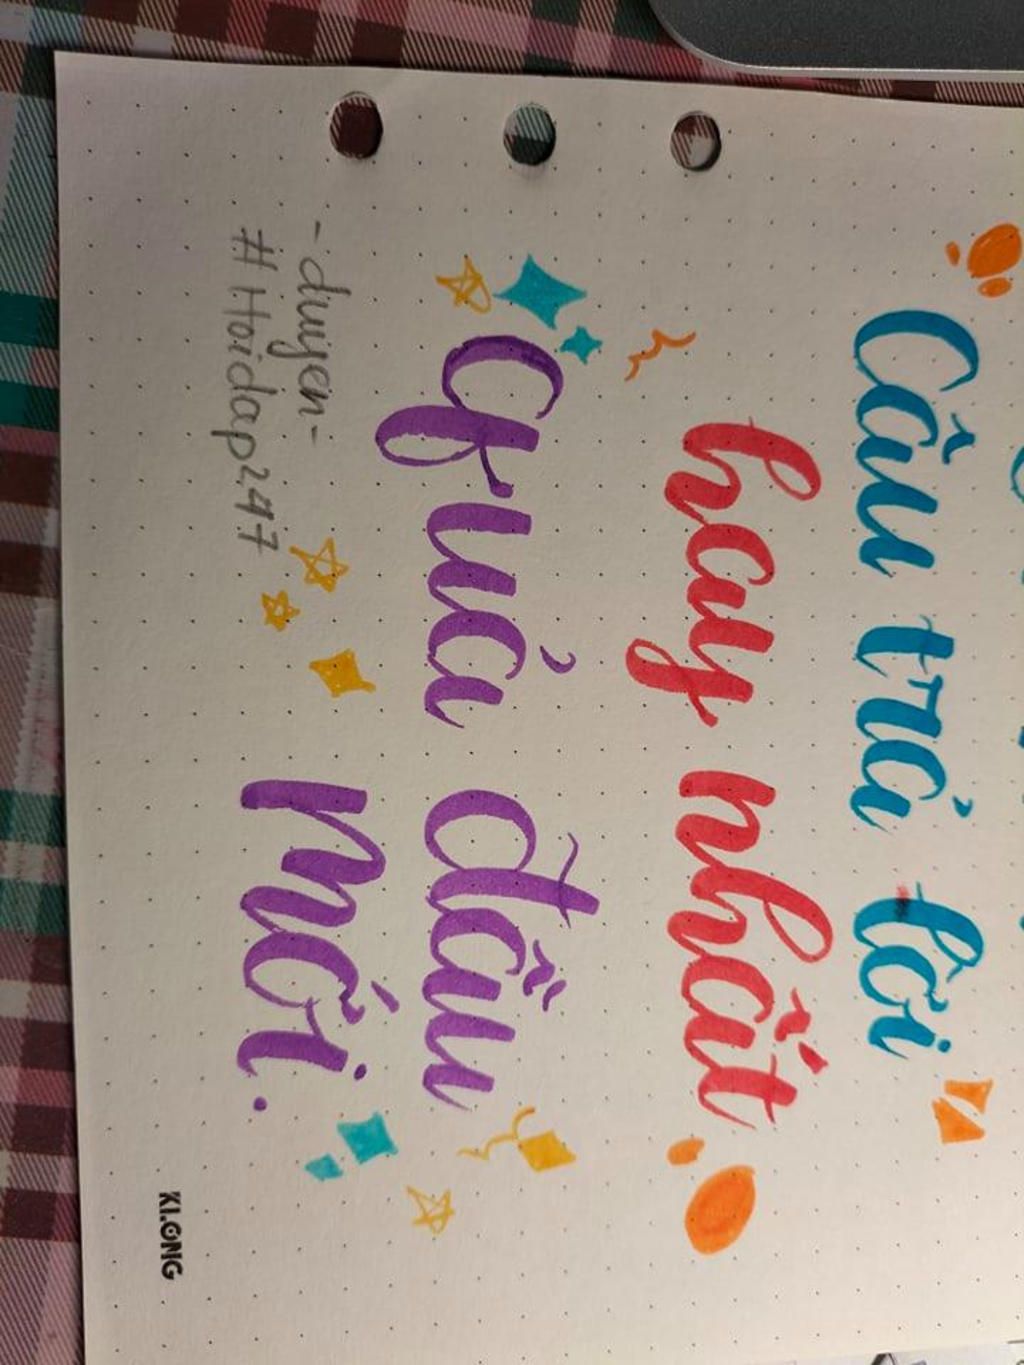 Câu trả lời
hay nhất
Quả đầu
mới.
-duyen-
#Hoidap247
KLONG